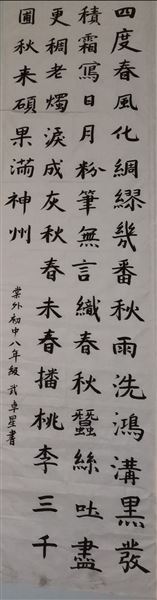 四度春風化綢繆幾番秋雨洗鴻溝黑發
積霜寫日月粉筆無言織春秋蠶絲吐盡
更稠老燭淚成灰秋春未春播桃李三千
圃秋来碩果滿神州
棠外初中八年級 武卓星書